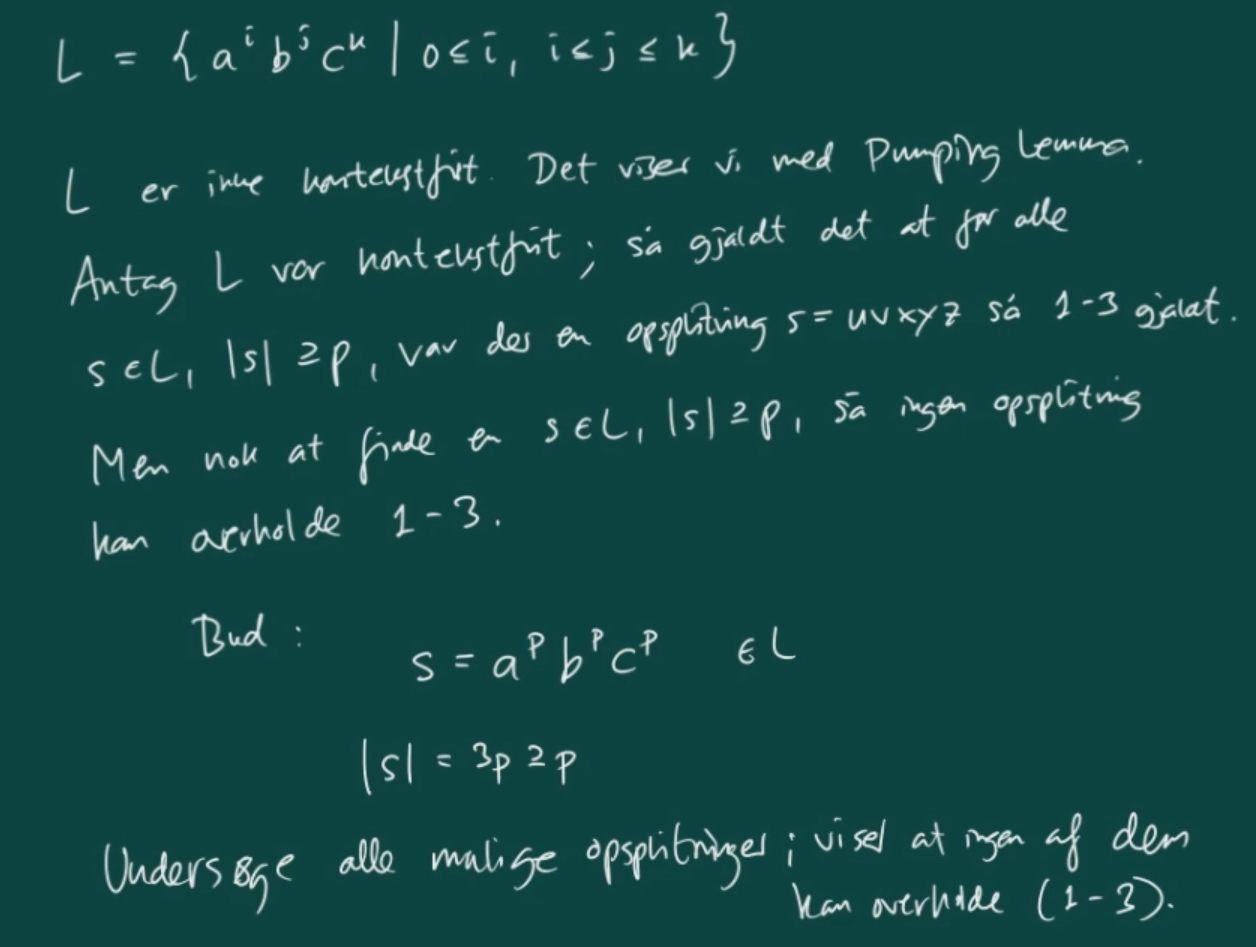 L = { a^i b^j c^k | 0 ≤ i, i ≤ j ≤ k }
L er ikke kontekstfrit. Det viser vi med Pumping Lemma.
Antag L var kontekstfrit ; så gjaldt det at for alle
s ∈ L, |s| ≥ p, var der en opsplitning s = uvxyz så 1-3 gjaldt.
Men nok at finde en s ∈ L, |s| ≥ p, så ingen opsplitning
kan overholde 1-3.
Bud :
s = a^p b^p c^p ∈ L
|s| = 3p ≥ p
Undersøge alle mulige opsplitninger ; viser at ingen af dem
kan overholde (1-3).